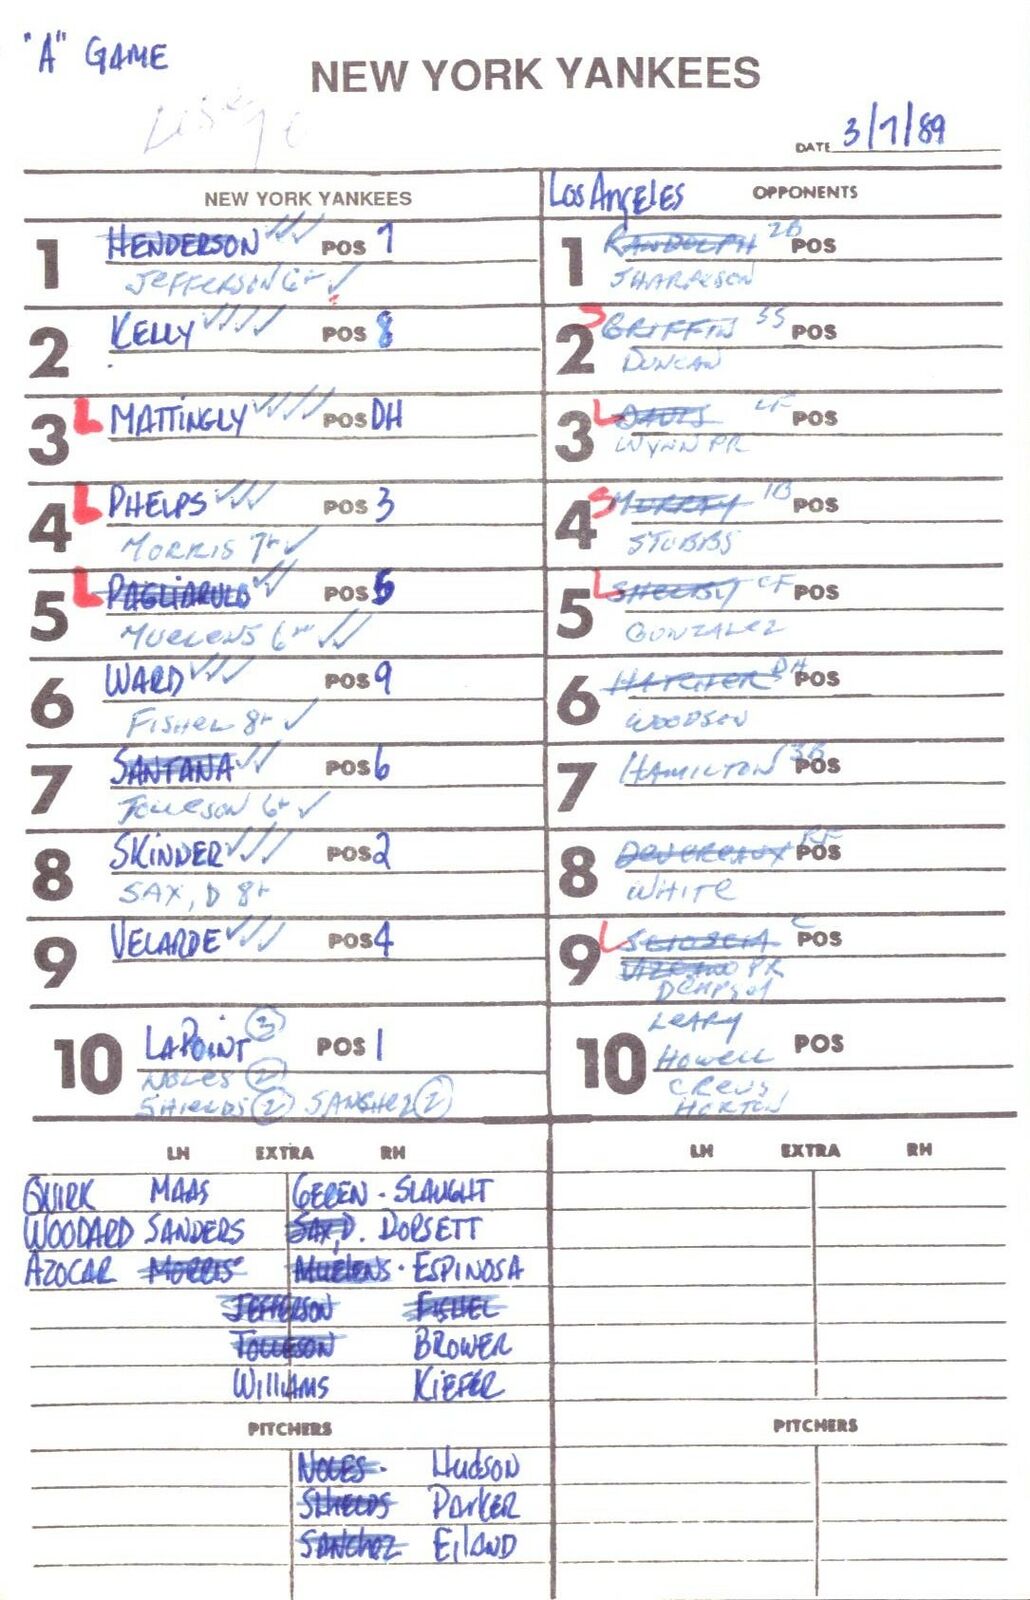 "A" GAME
NEW YORK YANKEES
DATE 3/7/89
NEW YORK YANKEES
Los Angeles OPPONENTS
1 HENDERSON POS 7
JEFFERSON 6+
1 RANDOLPH 2B POS
SHARPERSON
2 KELLY POS 8
2 S GRIFFIN SS POS
DUNCAN
3 L MATTINGLY POS DH
3 L DAVIS LF POS
WYNN PR
4 L PHELPS POS 3
MORRIS 7+
4 S MURRAY 1B POS
STUBBS
5 L PAGLIARULO POS 5
MUELENS 6
5 L SHELBY CF POS
GONZALEZ
6 WARD POS 9
FISHEL 8+
6 HATCHER DH POS
WOODSON
7 SANTANA POS 6
TOLLESON 6+
7 HAMILTON 3B POS
8 SKINNER POS 2
SAX, D 8+
8 DEVEREAUX RF POS
WHITE
9 VELARDE POS 4
9 L SCIOSCIA C POS
VIZCAINO PR
DEMPSEY
10 LAPOINT 3 POS 1
NOLES 2
SHIELDS 2 SANCHEZ 2
10 LEARY POS
HOWELL
CREWS
HORTON
LH EXTRA RH
QUIRK MAAS GEREN - SLAUGHT
WOODARD SANDERS SAX, D. DORSETT
AZOCAR MORRIS MUELENS - ESPINOSA
JEFFERSON FISHEL
TOLLESON BROWER
WILLIAMS KIEFER
LH EXTRA RH
PITCHERS
NOLES - HUDSON
SHIELDS PARKER
SANCHEZ EILAND
PITCHERS